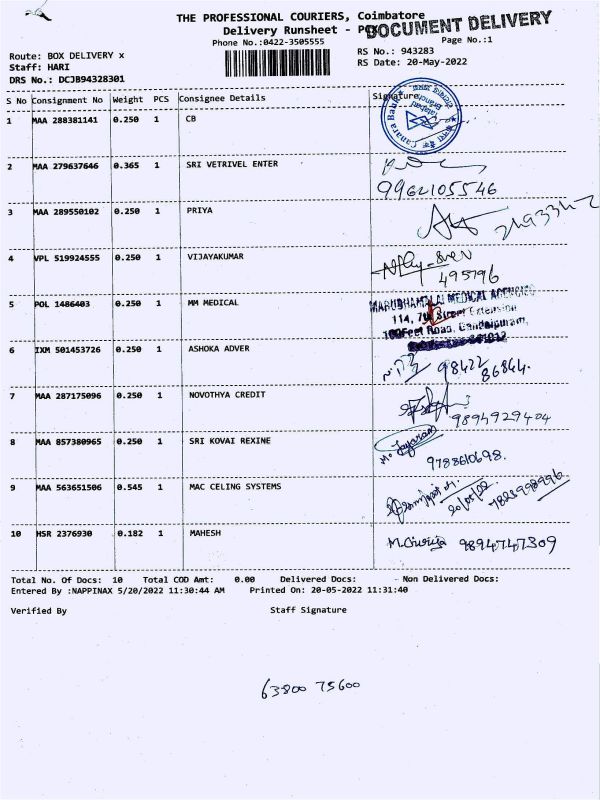 THE PROFESSIONAL COURIERS, Coimbatore
Delivery Runsheet - P
DOCUMENT DELIVERY
Phone No.:0422-3505555
Page No.:1
Route: BOX DELIVERY x
RS No.: 943283
Staff: HARI
RS Date: 20-May-2022
DRS No.: DCJB94328301
S No Consignment No Weight PCS Consignee Details Signature
1 MAA 288381141 0.250 1 CB
Canara Bank
2 MAA 279637646 0.365 1 SRI VETRIVEL ENTER
9962105546
3 MAA 289550102 0.250 1 PRIYA
4 VPL 519924555 0.250 1 VIJAYAKUMAR
495796
5 POL 1486403 0.250 1 MM MEDICAL
MARUDHAMALAI MEDICAL AGENCIES
114, 7th Street Extension
100Feet Road, Gandhipuram,
6 IXM 501453726 0.250 1 ASHOKA ADVER
98422
86844.
7 MAA 287175096 0.250 1 NOVOTHYA CREDIT
9894929404
8 MAA 857380965 0.250 1 SRI KOVAI REXINE
M. Jayaram
9788610698.
9 MAA 563651506 0.545 1 MAC CELING SYSTEMS
20/05/22
10 HSR 2376930 0.182 1 MAHESH
9894747309
Total No. Of Docs: 10 Total COD Amt: 0.00 Delivered Docs: - Non Delivered Docs:
Entered By :NAPPINAX 5/20/2022 11:30:44 AM Printed On: 20-05-2022 11:31:40
Verified By Staff Signature
63800 75600